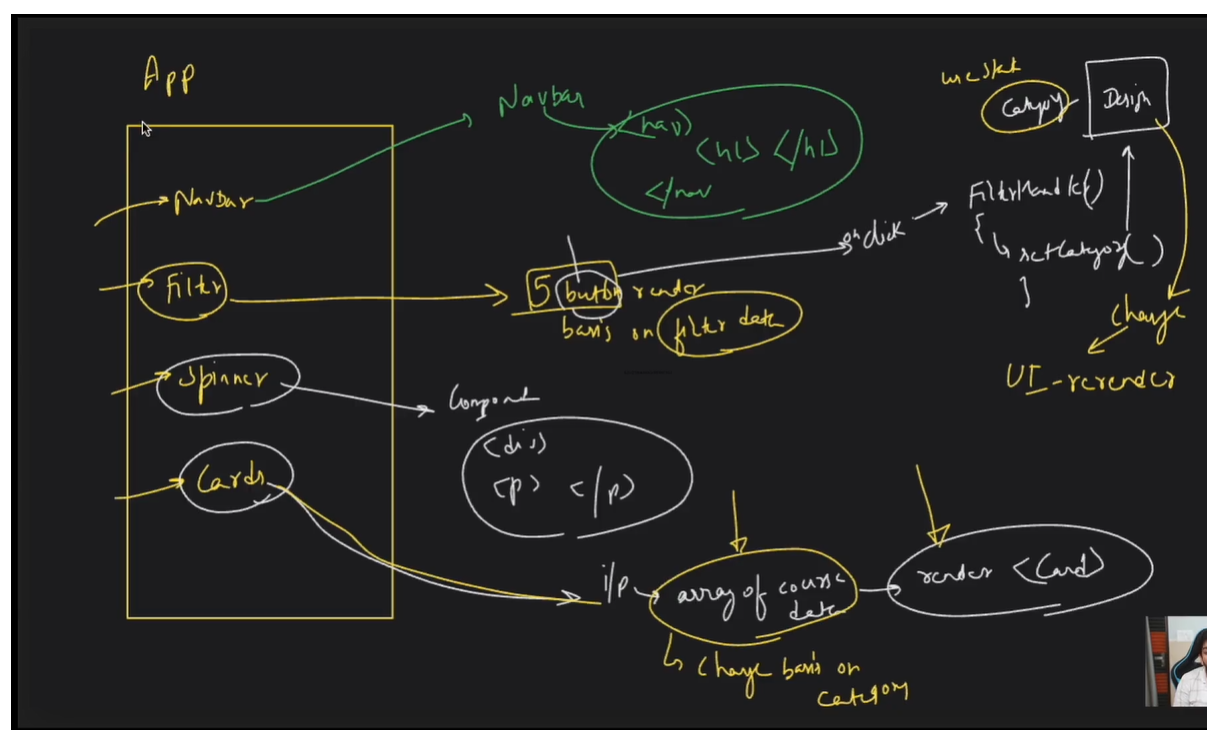 App
Navbar
Filter
Spinner
Cards
Navbar
<nav>
<h1> </h1>
</nav
5 button render
basis on filter data
onclick
useState
Category
Design
FilterHandler()
{
setCategory( )
}
change
UI-rerender
Component
<div>
<p> </p>
i/p
array of course
data
change basis on
category
render <Card>